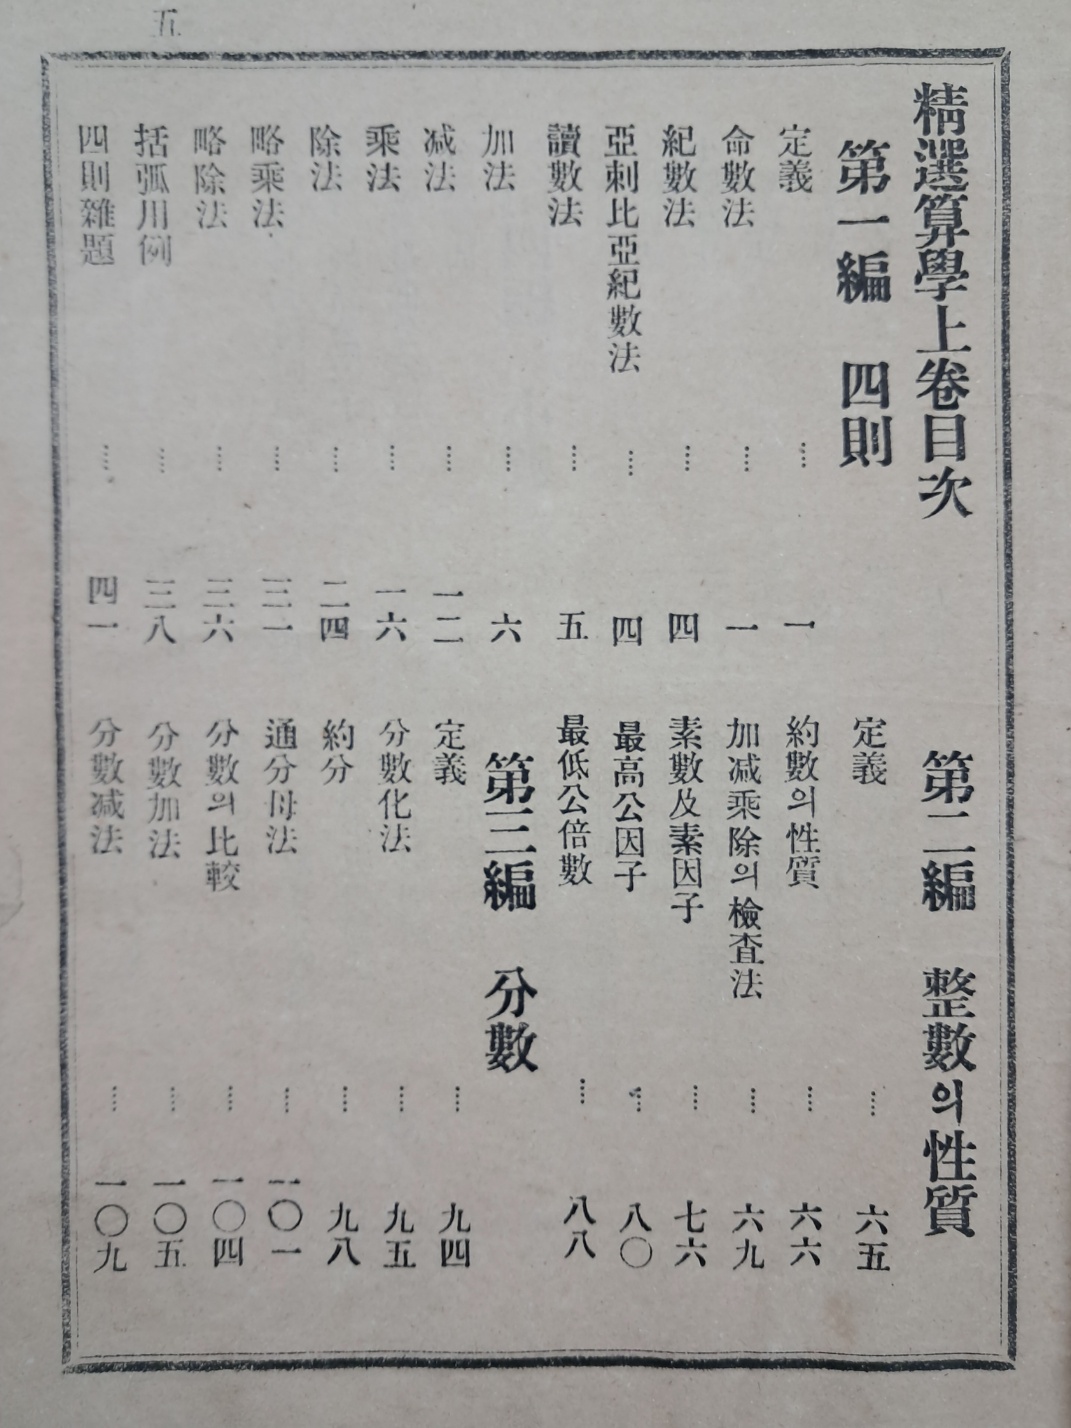 五
精選算學上卷目次
第一編 四則
定義 …… 一
命數法 …… 一
紀數法 …… 四
亞剌比亞紀數法 …… 四
讀數法 …… 五
加法 …… 六
减法 …… 一二
乘法 …… 一六
除法 …… 二四
略乘法 …… 三一
略除法 …… 三六
括弧用例 …… 三八
四則雜題 …… 四一
第二編 整數의性質
定義 …… 六五
約數의性質 …… 六六
加减乘除의檢査法 …… 六九
素數及素因子 …… 七六
最高公因子 …… 八〇
最低公倍數 …… 八八
第三編 分數
定義 …… 九四
分數化法 …… 九五
約分 …… 九八
通分母法 …… 一〇一
分數의比較 …… 一〇四
分數加法 …… 一〇五
分數减法 …… 一〇九